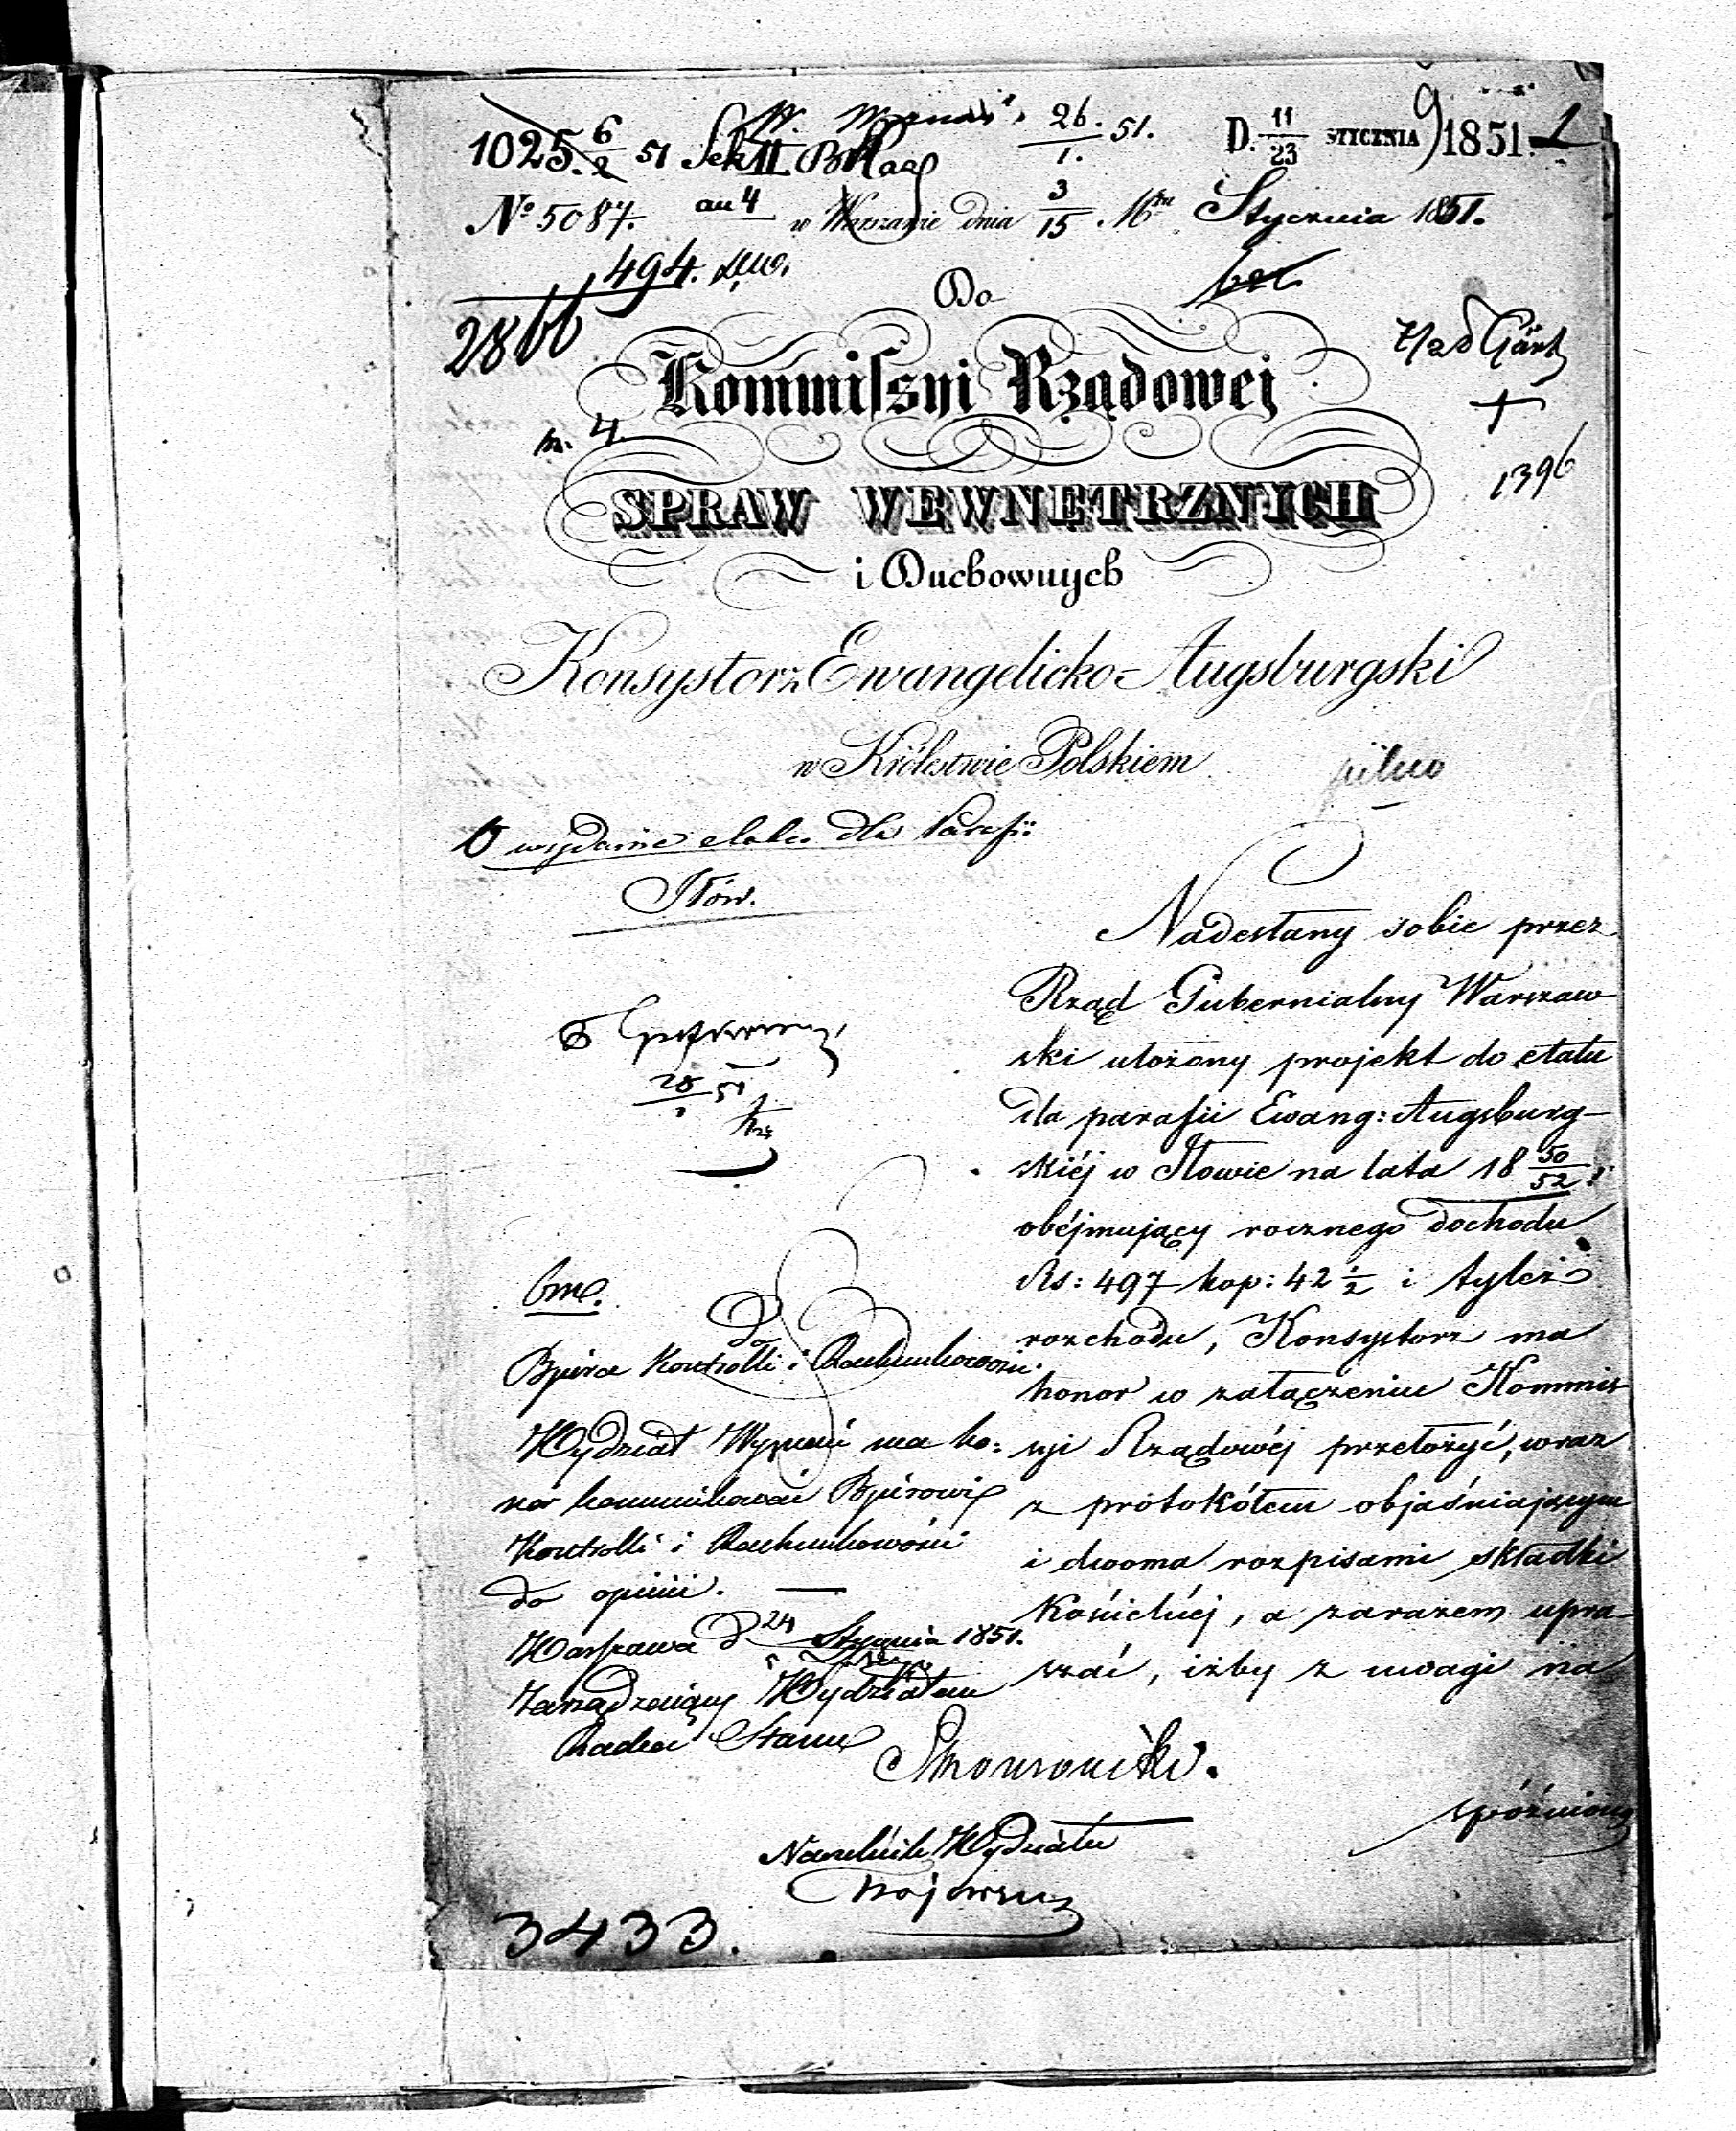 1025. 6/2 51 Sek II 26/1. 51. D. 11/23 STYCZNIA 1851. 1
9
№ 5087. w Warszawie dnia 3/15 Stycznia 1851.
494.
2866
Do
Kommissyi Rządowej
n. 4.
1396
SPRAW WEWNĘTRZNYCH
i Duchownych
Konsystorz Ewangelicko-Augsburgski
w Królestwie Polskiem
pilno
O wydanie etatu dla Parafii
Iłów.
Nadesłany sobie przez
Rząd Gubernialny Warszaw
ski ułożony projekt do etatu
dla parafii Ewang: Augsburg-
skiéj w Iłowie na lata 18 50/52
obéjmujący rocznego dochodu
Rs: 497 kop: 42 1/2 i tyleż
rozchodu, Konsystorz ma
honor w załączeniu Kommis
syi Rządowéj przełożyć, wraz
z protokółem objaśniającym
i dwoma rozpisami składki
Kościelnéj, a zarazem upra-
szać, iżby z uwagi na
spóźniony
28 51
Do
Bjura Kontrolli i Rachunkowości.
Wydział Wyznań ma ho:
nor kommunikować Bjurowi
Kontrolli i Rachunkowości
do opinii.
Warszawa d. 24 Stycznia 1851.
Zarządzający Wydziałem
Radca Stanu
Naczelnik Wydziału
3433.